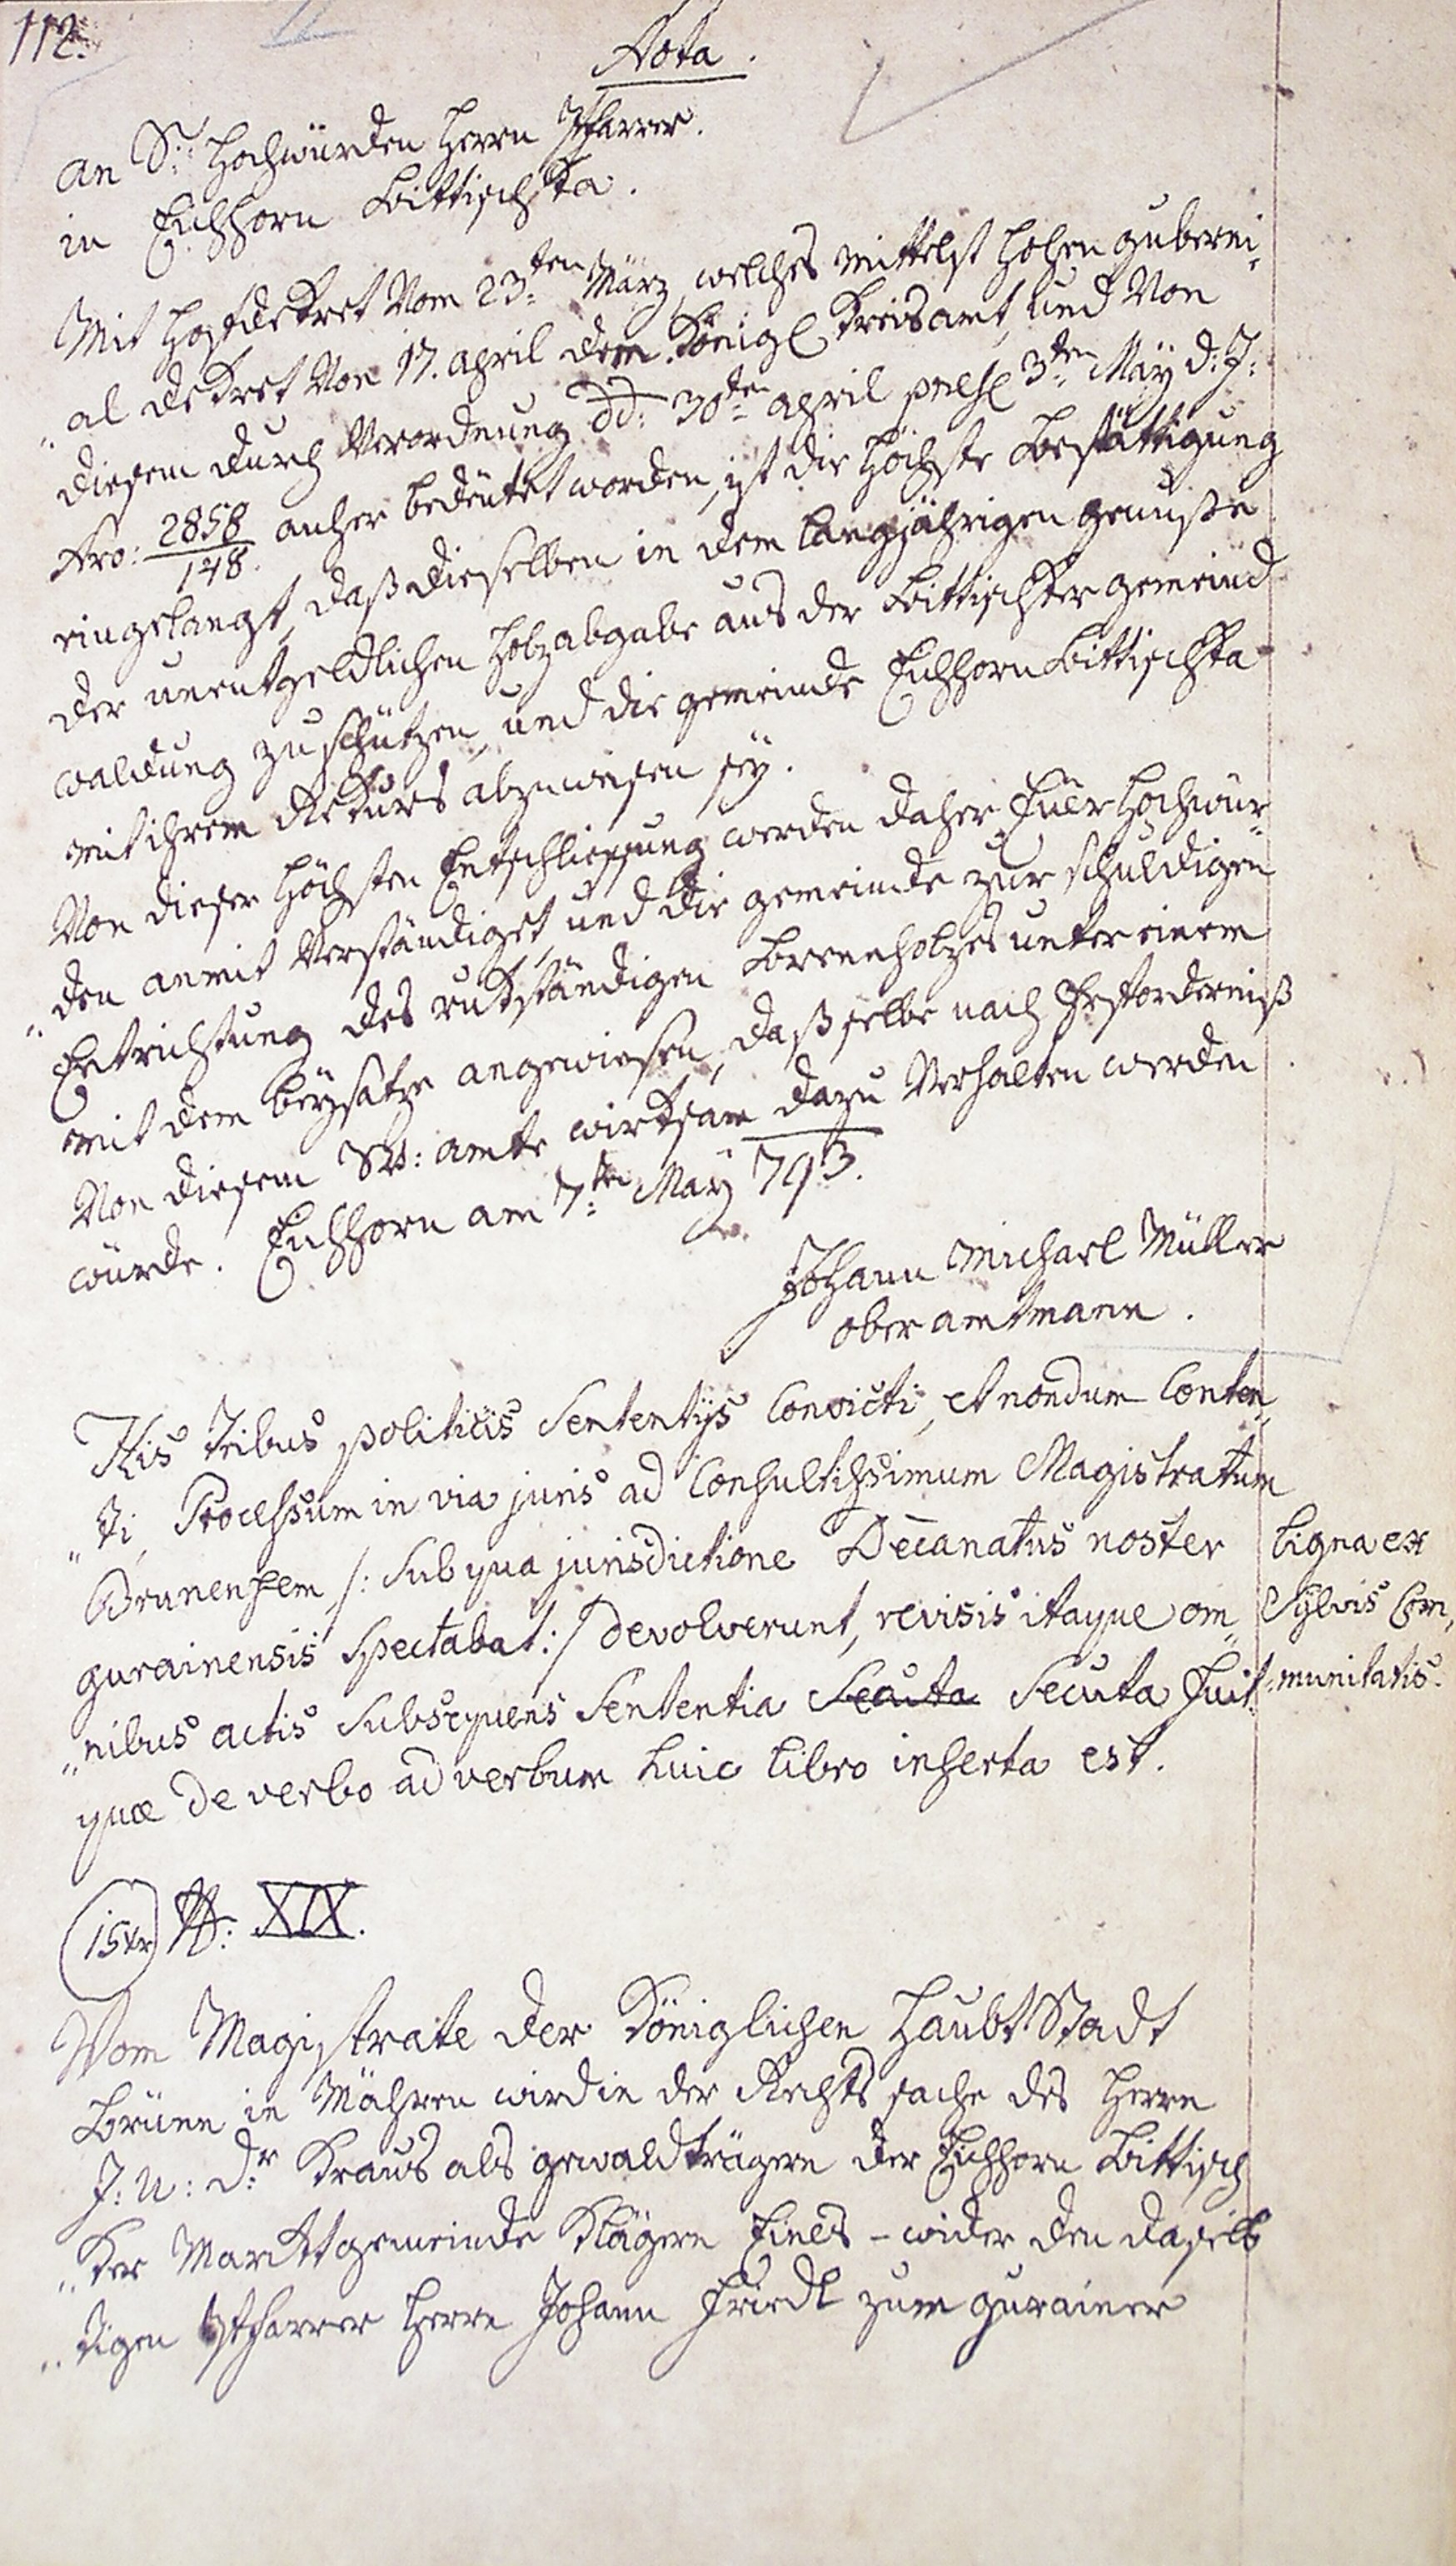 112.
Nota.
An Sr: Hochwürden Herrn Pfarrer.
in Eichhorn Bittischka.
Mit Hofdekret vom 23:ten März, welches mittelst hohen guberni„
„al dekret von 17. april dem Königl Kreisamt, und von
diesem durch Verordnung dd: 30:ten april 3:ten May d: J:
Nro: 2858/148. anher bedeütet worden, ist die höchste Bestättigung
eingelangt, daß dieselben in dem langjährigen genuße
der unentgeldlichen Holzabgabe aus der Bittischker gemeind
waldung zu schützen, und die gemeinde Eichhorn Bittischka
mit ihrem Rekurs abzuweisen seÿ.
Von dieser höchsten Entschliessung werden daher Euer Hochwür„
„den anmit verständiget, und die gemeinde zur schuldigen
Entrichtung des rukständigen Brennholzes unter einem
mit dem beysatze angewiesen, daß selbe nach Erforderniß
von diesem amte wirksam dazu verhalten werden
würde. Eichhorn am 7:ten May 793.
Johann Michael Müller
oberamtmann.
His tribus politicis Sententÿs Convicti, et nondum Conten„
„ti, Processum in via juris ad Consultissimum Magistratum
Brunensem /: Sub qua jurisdictione Decanatus noster
gurainensis Spectabat :/ devolverunt, revisis itaque om„
„nibus actis Subsequens Sententia Secuta Secuta fuit
quæ de verbo ad verbum huic libro inserta est.
Ligna ex
Sÿlvis Com„
munitatis.
15 xr N: XIX.
Vom Magistrate der Königlichen Haubt Stadt
Brünn in Mähren wird in der Rechts sache des Herrn
J: U: Dr Kraus als gewaldträgern der Eichhorn Bittisch
„ker Marktgemeinde Klägern Eines - wider den daselb
„tigen Pfarrer Herrn Johann Friedl zum gurainer